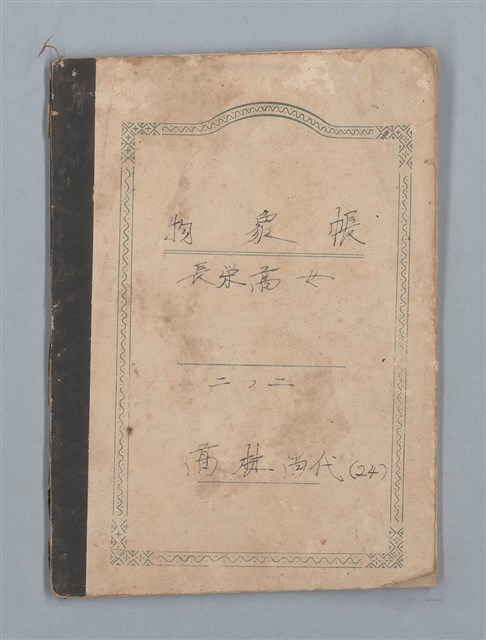 物象帳
長栄高女
二ノ二
高林尚代(24)